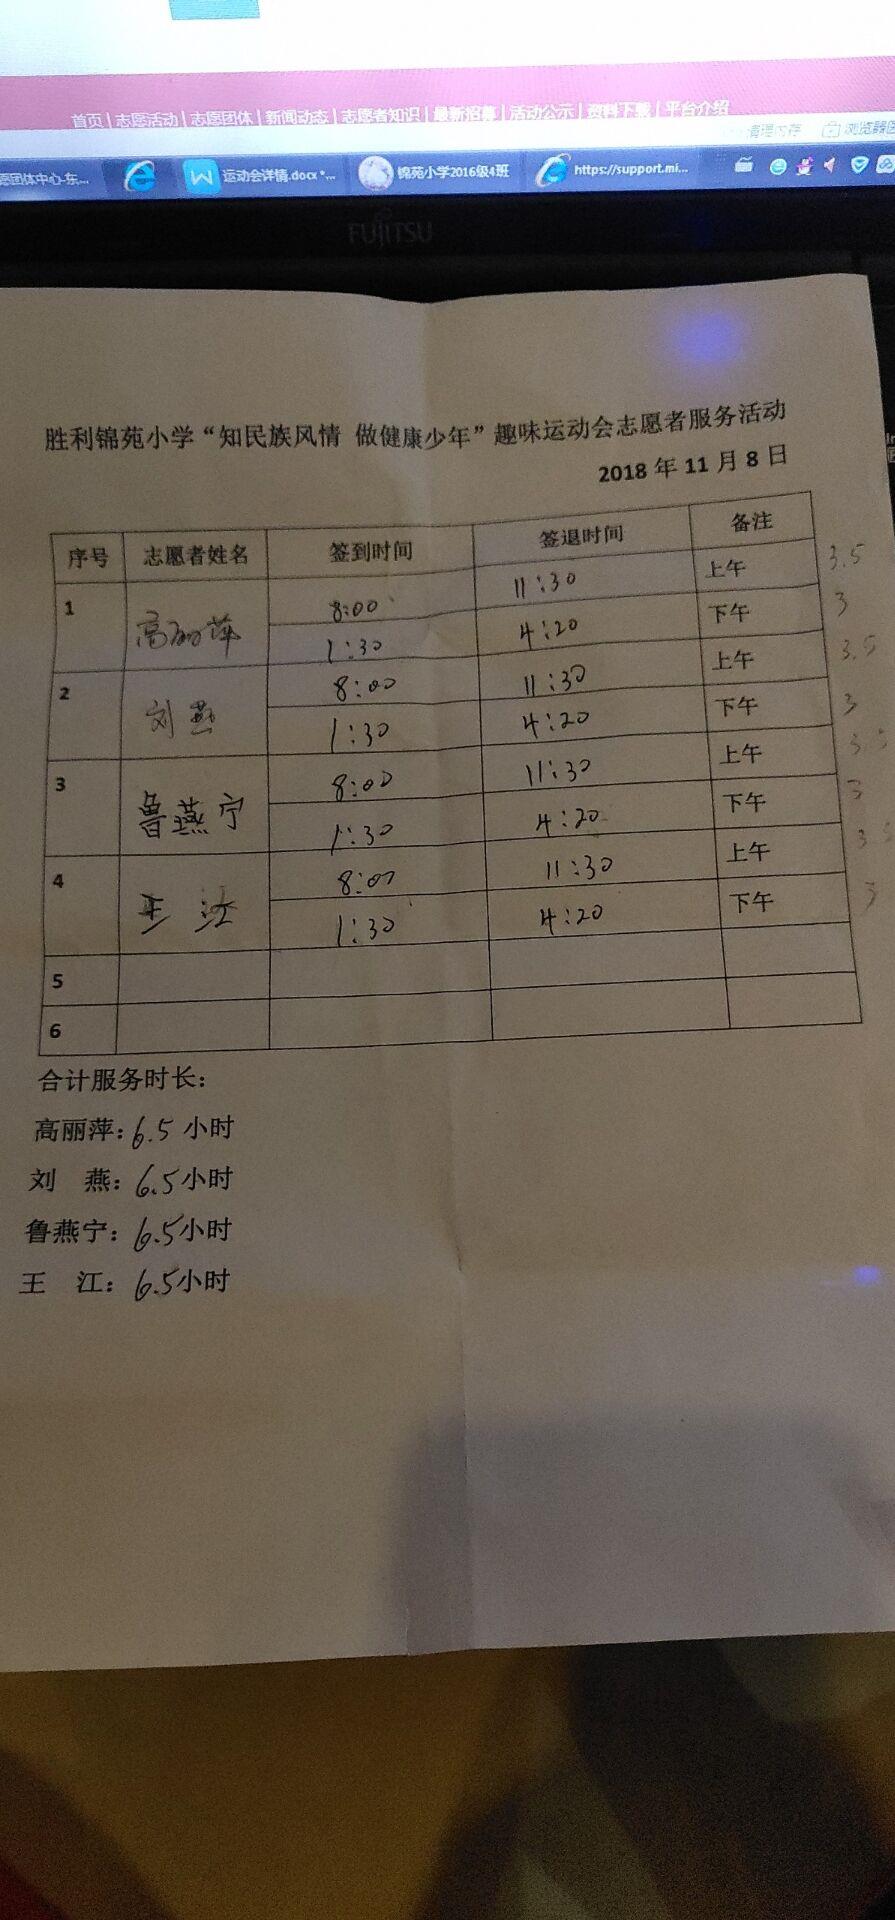 首页 | 志愿活动 | 志愿团体 | 新闻动态 | 志愿者知识 | 最新招募 | 活动公示 | 资料下载 | 平台介绍
清理内存 浏览器医
愿团体中心-东... 运动会详情.docx *... 锦苑小学2016级4班 https://support.mi...
FUJITSU
胜利锦苑小学“知民族风情 做健康少年”趣味运动会志愿者服务活动
2018 年 11 月 8 日
序号 志愿者姓名 签到时间 签退时间 备注
1 高丽萍 8:00 11:30 上午 3.5
1:30 4:20 下午 3
2 刘燕 8:00 11:30 上午 3.5
1:30 4:20 下午 3
3 鲁燕宁 8:00 11:30 上午 3.5
1:30 4:20 下午 3
4 王江 8:00 11:30 上午 3.5
1:30 4:20 下午 3
5
6
合计服务时长：
高丽萍：6.5 小时
刘 燕：6.5小时
鲁燕宁：6.5小时
王 江：6.5小时